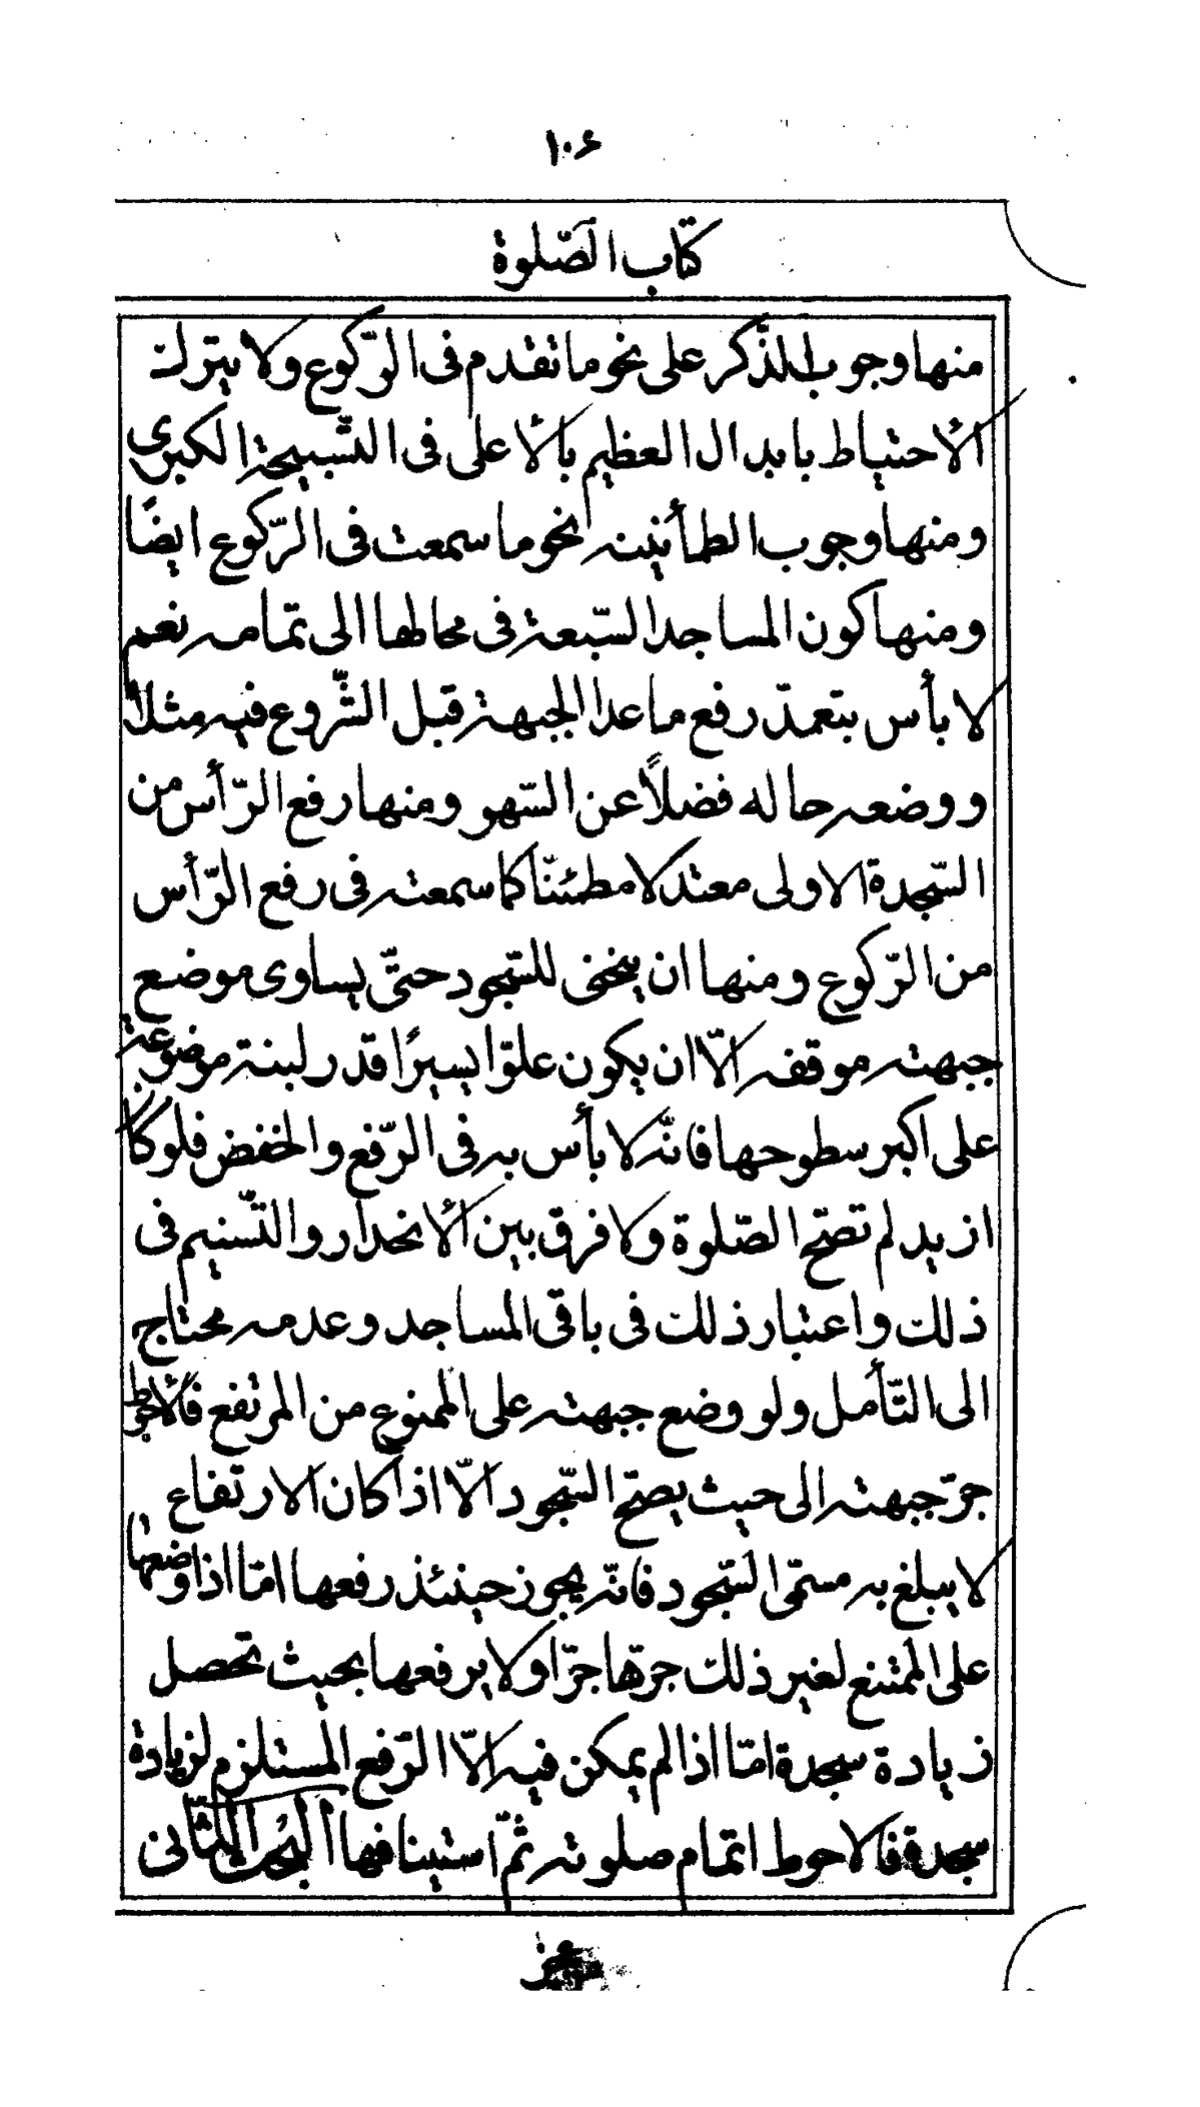 ۱۰۶
كتاب الصّلوة
منها وجوب الذّكر على نحو ما تقدم فى الرّكوع ولا يترك
الأحتياط بابدال العظيم بالأعلى فى التّسبيحة الكبرى
ومنها وجوب الطمأنينه نحو ما سمعت فى الرّكوع ايضًا
ومنها كون المساجد السّبعة فى محالها الى تمامه نعم
لا بأس بتعمّد رفع ما عدا الجبهة قبل الشّروع فيه مثلاً
ووضعه حاله فضلاً عن السّهو ومنها رفع الرّأس من
السّجدة الاولى معتدلا مطمئنّا كما سمعته فى رفع الرّأس
من الرّكوع ومنها ان ينحنى للسّجود حتّى يساوى موضع
جبهته موقفه الّا ان يكون علوّا يسيرًا قدر لبنة موضوعة
على اكبر سطوحها فانّه لا بأس به فى الرّفع والخفض فلو كان
ازيد لم تصّح الصّلوة ولا فرق بين الأنحدار والتّسنيم فى
ذلك واعتبار ذلك فى باقى المساجد وعدمه محتاج
الى التّأمل ولو وضع جبهته على الممنوع من المرتفع فالأحوط
جرّ جبهته الى حيث يصّح السّجود الّا اذا كان الارتفاع
لا يبلغ به مسمّى السّجود فانّه يجوز حينئذ رفعها امّا اذا وضعها
على الممتنع لغير ذلك جرّها جرّا ولا يرفعها بحيث تحصل
زيادة سجدة امّا اذا لم يمكن فيه الّا الرّفع المستلزم لزيادة
سجدة فالاحوط اتمام صلوته ثمّ استينافها البحث الثّانى